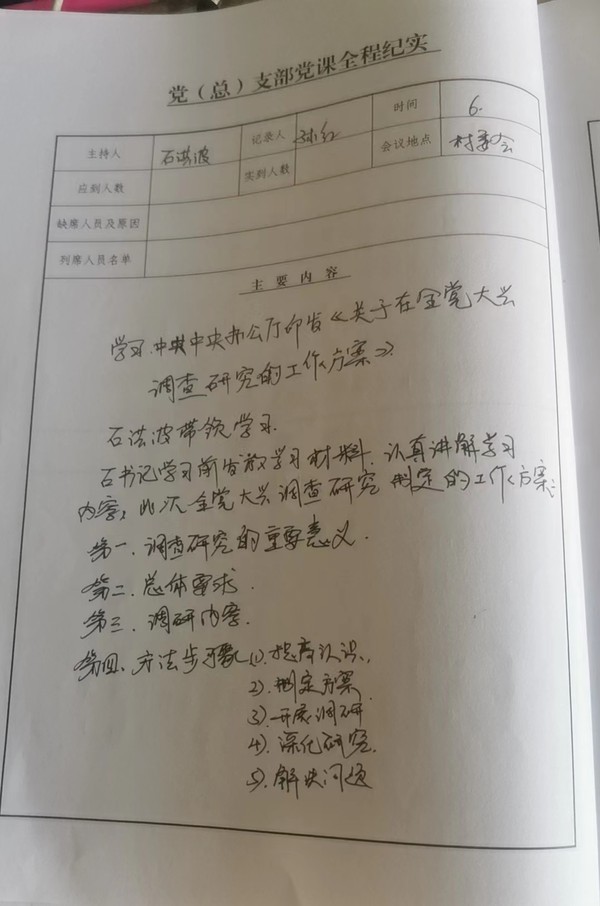 党（总）支部党课全程纪实
主持人 石洪波 记录人 孙红 时间 6.
应到人数 实到人数 会议地点 村委会
缺席人员及原因
列席人员名单
主要内容
学习.中共中央办公厅印发《关于在全党大兴
调查研究的工作方案》.
石洪波带领学习.
石书记学习前发放学习材料.认真讲解学习
内容,此次全党大兴调查研究制定的工作方案:
第一.调查研究的重要意义.
第二.总体要求.
第三.调研内容.
第四、方法步骤(1).提高认识.
2).制定方案.
3).开展调研
4).深化研究.
5).解决问题